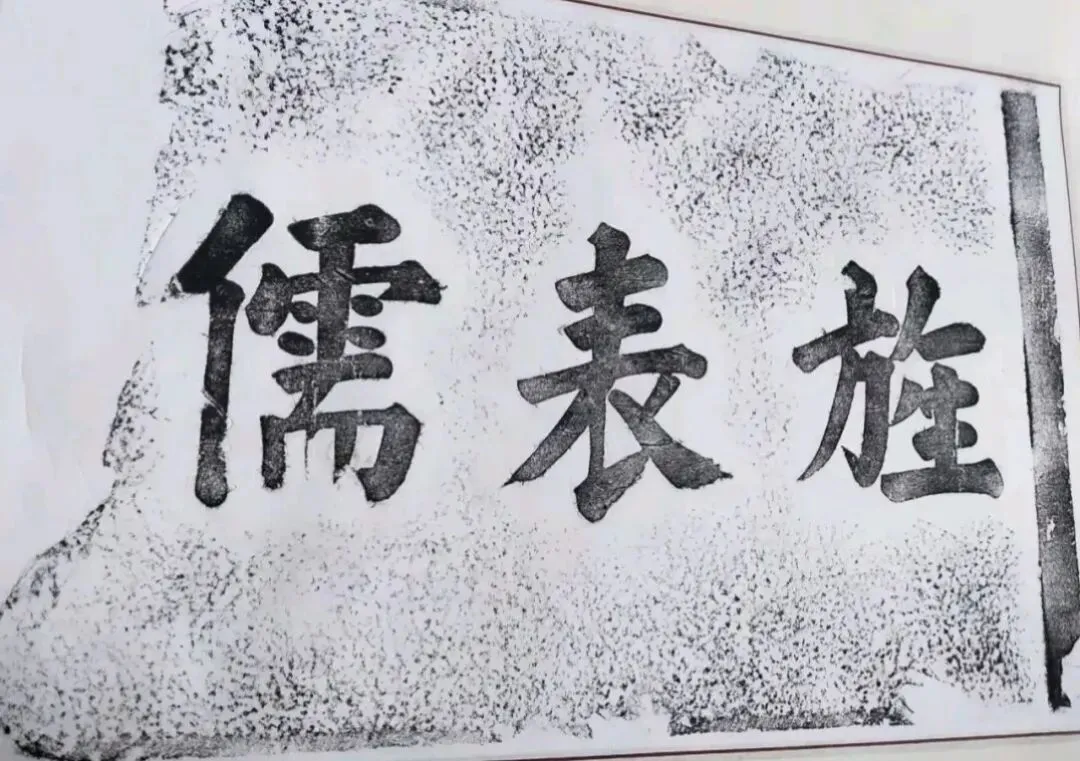 旌表儒